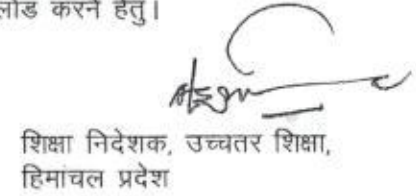 लोड करने हेतु।
शिक्षा निदेशक, उच्चतर शिक्षा,
हिमांचल प्रदेश